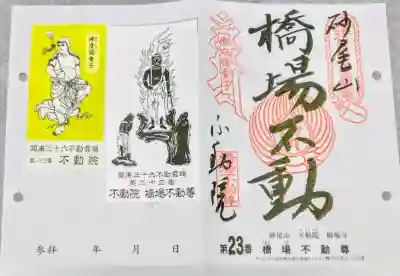 砂尾山
橋場不動
不動院
関東三十六不動霊場
第二十三番 不動院
関東三十六不動霊場
第二十三番
不動院 橋場不動尊
参拝 年 月 日
砂尾山 不動院 橋場寺
第23番 橋場不動尊